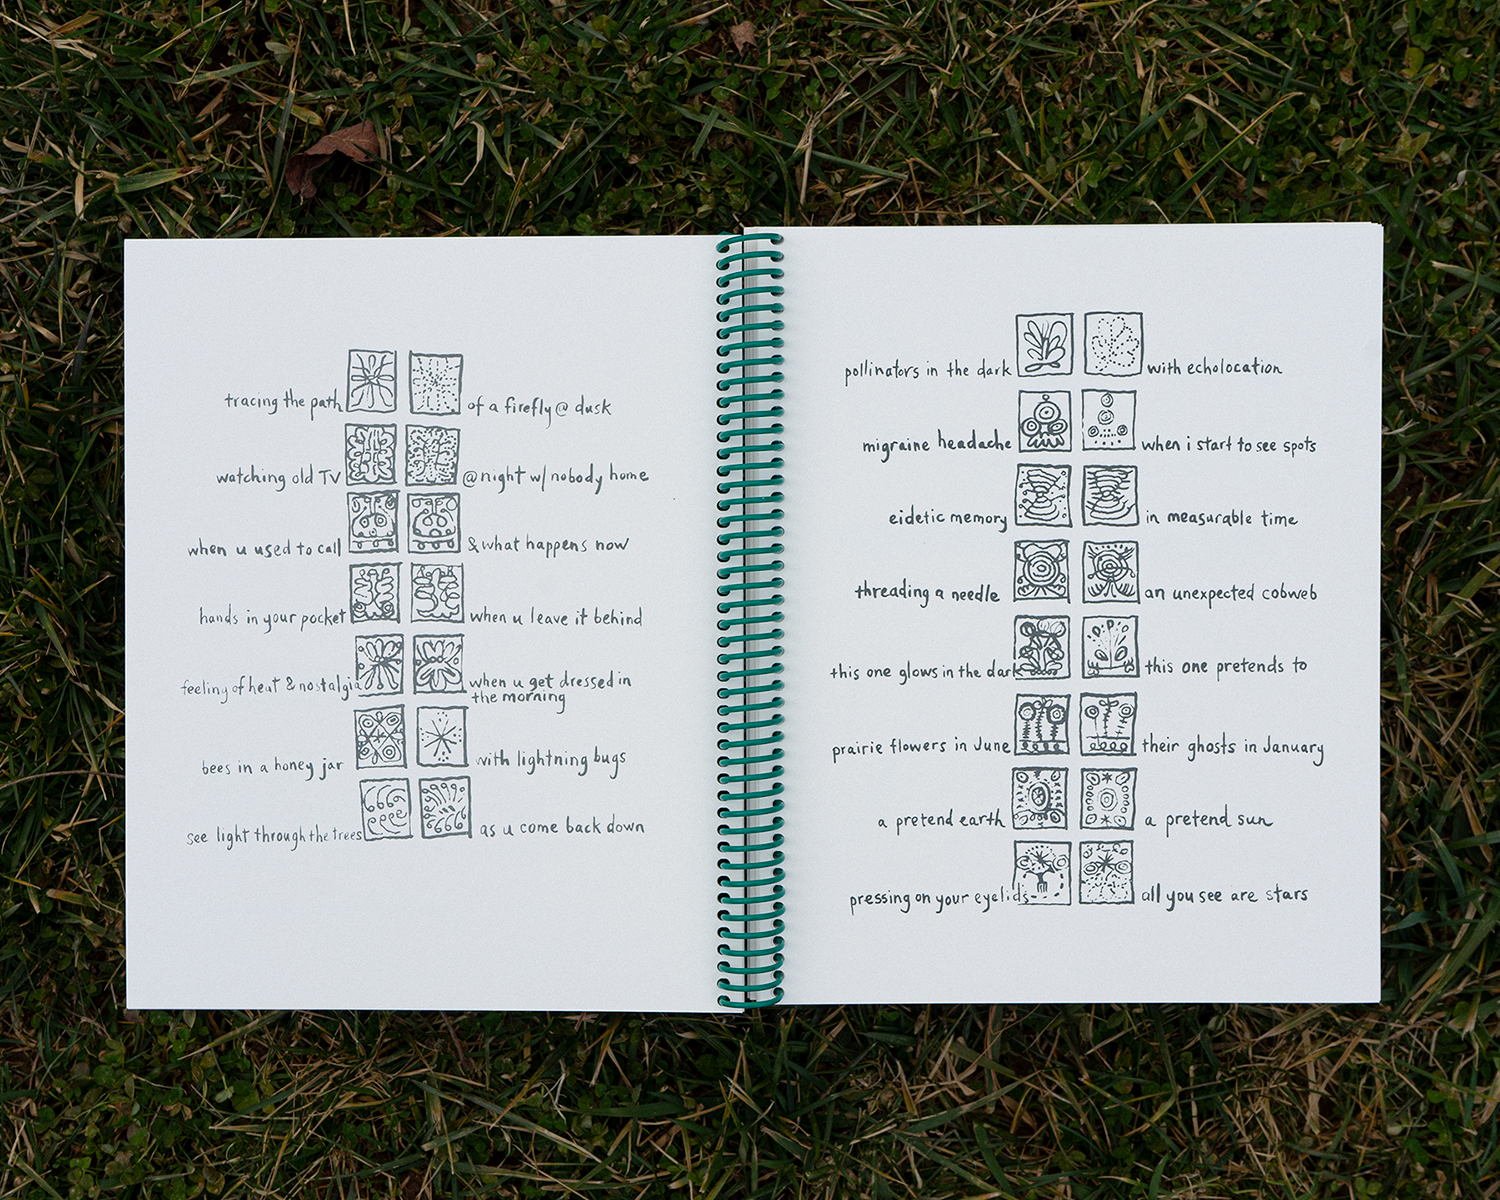 tracing the path of a firefly @ dusk
watching old TV @ night w/ nobody home
when u used to call & what happens now
hands in your pocket when u leave it behind
feeling of heat & nostalgia when u get dressed in
the morning
bees in a honey jar with lightning bugs
see light through the trees as u come back down
pollinators in the dark with echolocation
migraine headache when i start to see spots
eidetic memory in measurable time
threading a needle an unexpected cobweb
this one glows in the dark this one pretends to
prairie flowers in June their ghosts in January
a pretend earth a pretend sun
pressing on your eyelids all you see are stars